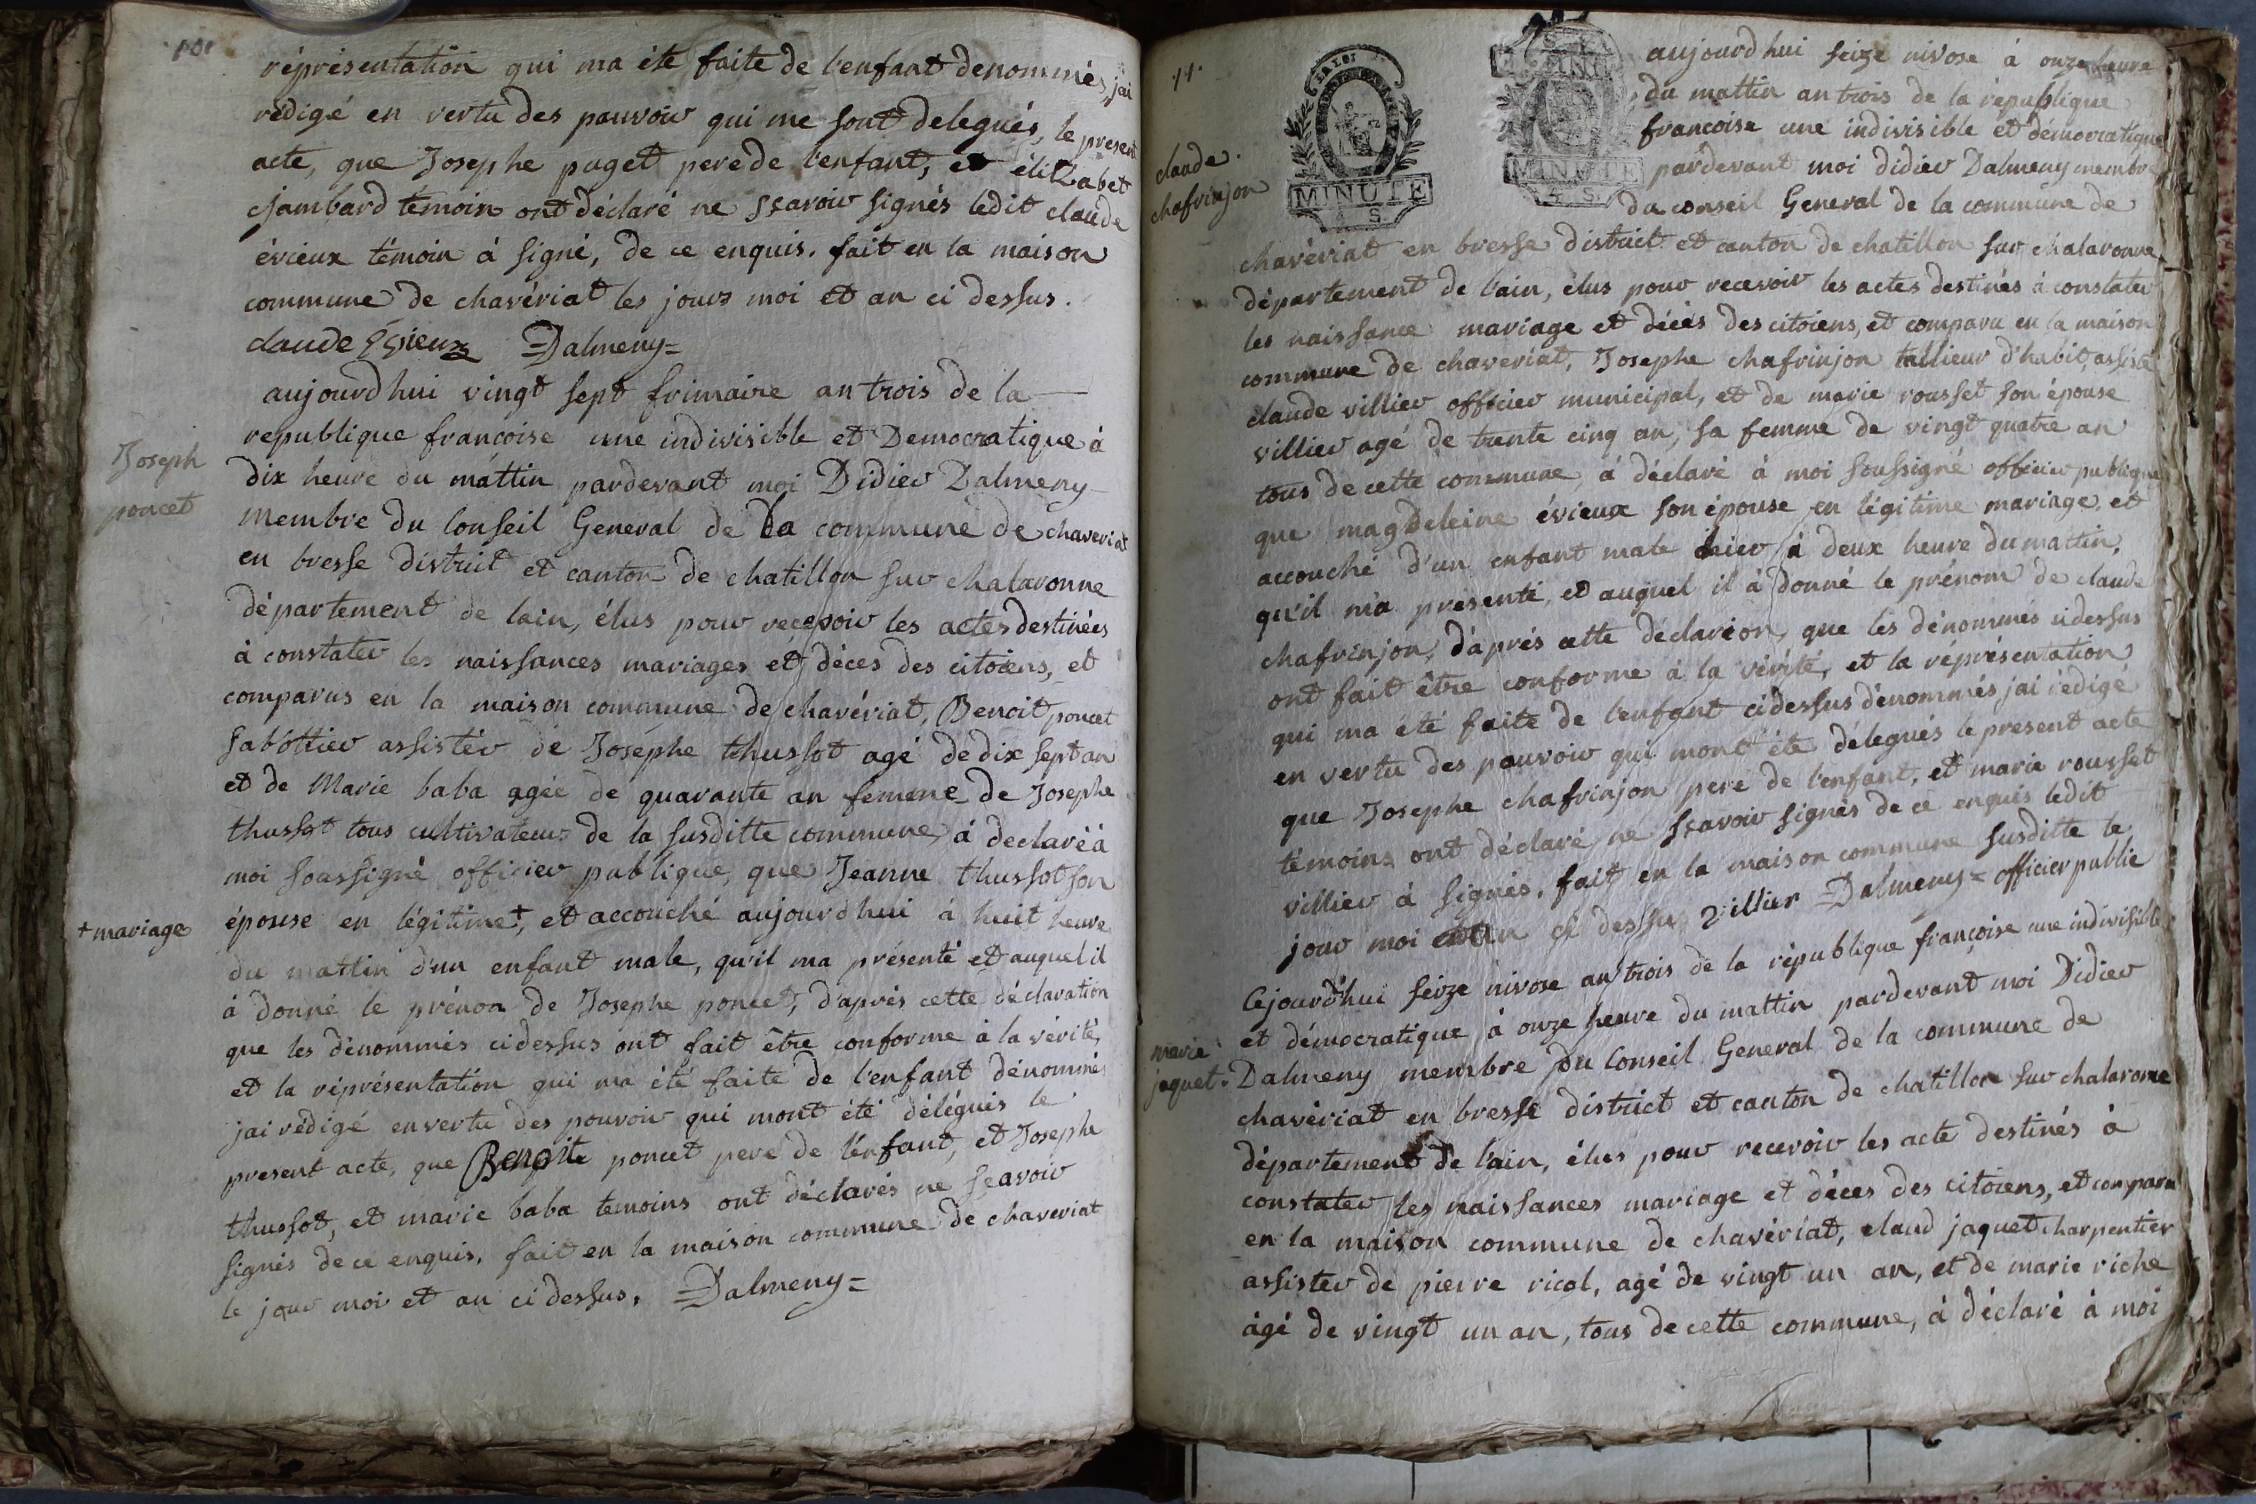 101
réprésentation qui ma été faite de l'enfant denommé, jai
rédigé en vertu des pouvoir qui me sont delegués, le present
acte, que Josephe puget pere de l'enfant, et élizabet
jambard témoin ont déclaré ne sçavoir signés ledit claude
évieux témoin à signé, de ce enquis. fait en la maison
commune de chavériat les jours moi et an ci dessus.
claude Evieux =Dalmeny=
Joseph
poncet
aujourd hui vingt sept frimaire an trois de la
republique francoise une indivisible et Democratique à
dix heure du mattin pardevant moi Didier Dalmeny
membre du Conseil General de la commune de chaveriat
en bresse district et canton de chatillon sur chalaronne
département de lain, élus pour recevoir les actes destinées
à constater les naissances mariages et déces des citoiens, et
comparus en la maison commune de chavériat, Benoit poncet
sabottier assistér de Joséphe thussot agé de dix sept an
et de Marie baba agée de quarante an femme de Josephe
thussot tous cultivateur de la susditte commune, à declaré à
moi soussigné officier publique, que Jeanne thussot son
épouse en légitime +, et accouché aujourd hui à huit heure
+ mariage
du mattin d'un enfant male, qu'il ma présenté et auquel il
à donné le prénon de Josephe poncet, d'aprés cette déclaration
que les dénommés cidessus ont fait être conforme à la vérité,
et la réprésentation qui ma été faite de l'enfant dénommé
jai rédigé en vertu des pouvoir qui mont été délégués le
present acte, que Benoite poncet pere de l'enfant, et Josephe
thussot, et marie baba temoins ont déclarés ne sçavoir
signés de ce enquis, fait en la maison commune de chaveriat
le jour moi et an ci dessus, =Dalmeny=
11.
LA LOI
MINUTE
4 S
MINUTE
4 S
claude
chafrinjon
aujourd hui seize nivose à onze heure
du mattin an trois de la république
francoise une indivisible et démocratique
pardevant moi didier Dalmeny membre
du conseil General de la commune de
chavériat en bresse district et canton de chatillon sur chalaronne
département de l'ain, élus pour recevoir les actes destinés à constater
les naissance mariage et décès des citoiens, et comparu en la maison
commune de chaveriat, Josephe chafrinjon tallieur d'habit, assisté
claude villier officier municipal, et de marie rousset son épouse
villier agé de trente cinq an, sa femme de vingt quatre an
tous de cette commune, à déclaré à moi soussigné officier publique
que magdeleine évieux son épouse en légitime mariage, et
accouché d'un enfant male hier à deux heure du mattin,
qu'il m'a presenté, et auquel il à donné le prénom de claude
chafrinjon, d'aprés cette déclareon, que les dénommés cidessus
ont fait être conforme à la vérité, et la réprésentation
qui ma été faite de l'enfant cidessus dénommés jai redigé
en vertu des pouvoir qui mont été délegués le present acte
que Josephe chafrinjon pere de l'enfant, et marie rousset
témoins ont déclaré ne sçavoir signés de ce enquis ledit
villier à signés. fait en la maison commune susditte le
jour moi et an ci dessus villier Dalmeny= officier public
marie
jaquet.
Cejourd'hui seize nivose an trois de la république françoise une indivisible
et démocratique à onze heure du mattin pardevant moi Didier
Dalmeny membre du Conseil General de la commune de
chavériat en bresse district et canton de chatillon sur chalaronne
département de l'ain, élus pour recevoir les acte destinés à
constater les naissances mariage et déces des citoiens, et comparu
en la maison commune de chavériat, claud jaquet charpentier
assister de pierre rical, agé de vingt un an, et de marie riche
àgé de vingt un an, tous de cette commune, à déclaré à moi